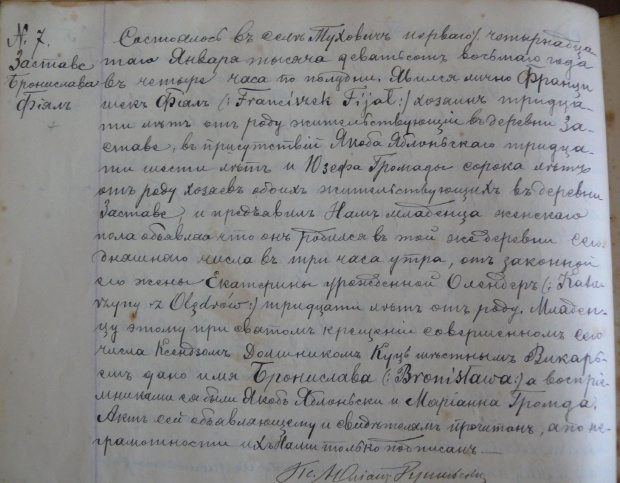 № 7.
Заставе
Бронислава
Фіялъ
Состоялось въ селѣ Туховичъ перваго/четырнадца
таго Января тысяча девятьсотъ восьмаго года
въ четыре часа по полудни. Явился лично Франци
шекъ Фіялъ (: Franciszek Fijał :) хозяинъ тридца-
ти лѣтъ отъ роду жительствующій въ деревни За-
ставе, въ присутствіи Якоба Яблоньскаго тридца-
ти шести лѣтъ и Юзефа Громады сорока лѣтъ
отъ роду хозяевъ обоихъ жительствующихъ въ деревни
Заставе, и предъявилъ Намъ младенца женскаго
пола объявляя что онъ родился въ той же деревни сего
дняшняго числа въ три часа утра, отъ законной
его жены Екатерины урожденной Олендеръ (: Kata-
rzyny z Olędrów :) тридцати лѣтъ отъ роду. Младен-
цу этому при святомъ крещеніи совершенномъ сего
числа Ксендзомъ Домникомъ Куць мѣстнымъ Викарь-
емъ дано имя Бронислава (: Bronisława :) а воспріе-
мниками ея были Якобъ Яблоньски и Маріанна Громада.
Актъ сей объявляющему и свидѣтелямъ прочитанъ, а по не-
грамотности ихъ Нами только подписанъ
Кс. Юліанъ